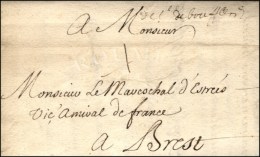 A Monsieur
Monsieur Le Marechal d'Estreés
Viçe Amiral de france
A Brest